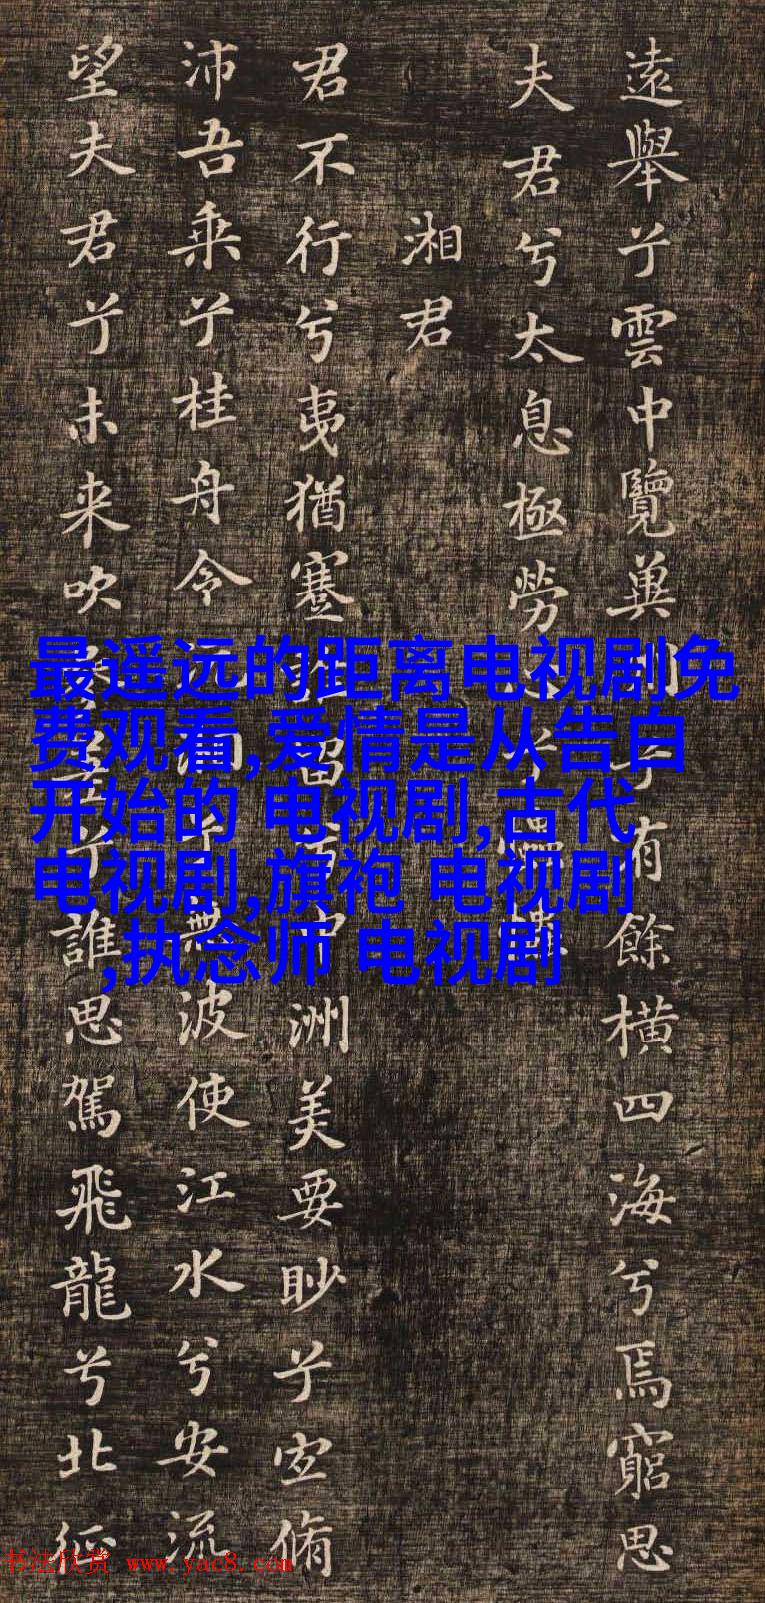 遠舉兮雲中覽兾兮有餘橫四海兮焉窮思
夫君兮太息極勞
湘君
君不行兮夷猶蹇留中洲美要眇兮宜脩
沛吾乘兮桂舟令無波使江水兮安流
望夫君兮未来吹誰思駕飛龍兮北征
最遥远的距离电视剧免
费观看,爱情是从告白
开始的 电视剧,古代
电视剧,旗袍 电视剧
,执念师 电视剧
书法欣赏 www.yac8.com